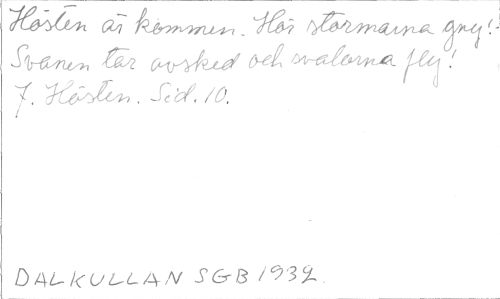 Hösten är kommen. Hör stormarna gny!-
Svanen tar avsked och svalorna fly!
7. Hösten. Sid. 10.
DALKULLAN SGB 1932.